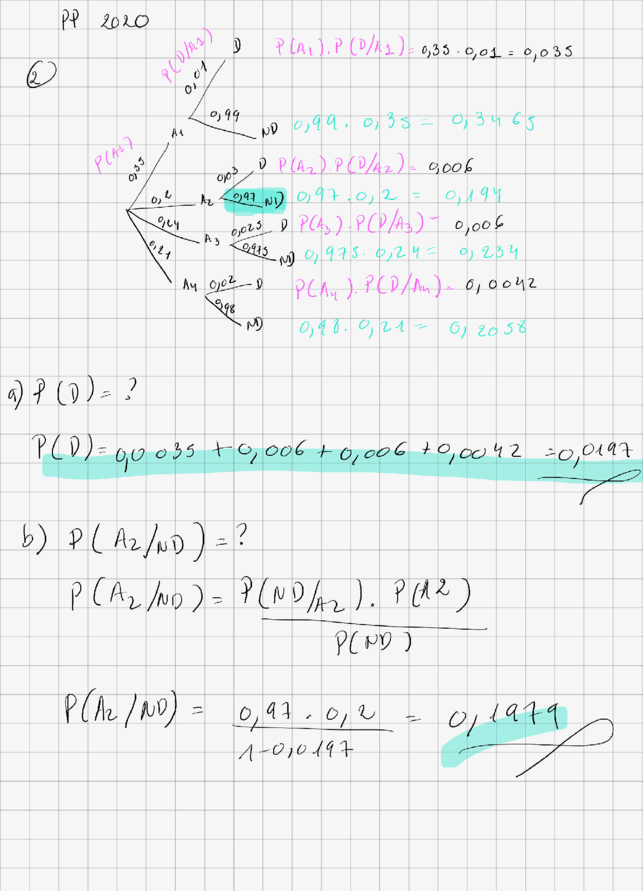 PP 2020
2
P(D/A1)
0,01
D P(A1).P(D/A1)= 0,35 . 0,01 = 0,035
0,99
ND 0,99 . 0,35 = 0,3465
A1
P(A1)
0,35
0,03 D P(A2).P(D/A2)= 0,006
0,2 A2 0,97 ND 0,97 . 0,2 = 0,194
0,24 A3 0,025 D P(A3).P(D/A3)= 0,006
0,975 ND 0,975 . 0,24 = 0,234
0,21 A4 0,02 D P(A4).P(D/A4)= 0,0042
0,98 ND 0,98 . 0,21 = 0,2058
a) P(D)= ?
P(D)= 0,0035 + 0,006 + 0,006 + 0,0042 = 0,0197
b) P(A2/ND)= ?
P(A2/ND)= P(ND/A2). P(A2)
P(ND)
P(A2/ND) = 0,97 . 0,2 = 0,1979
1-0,0197